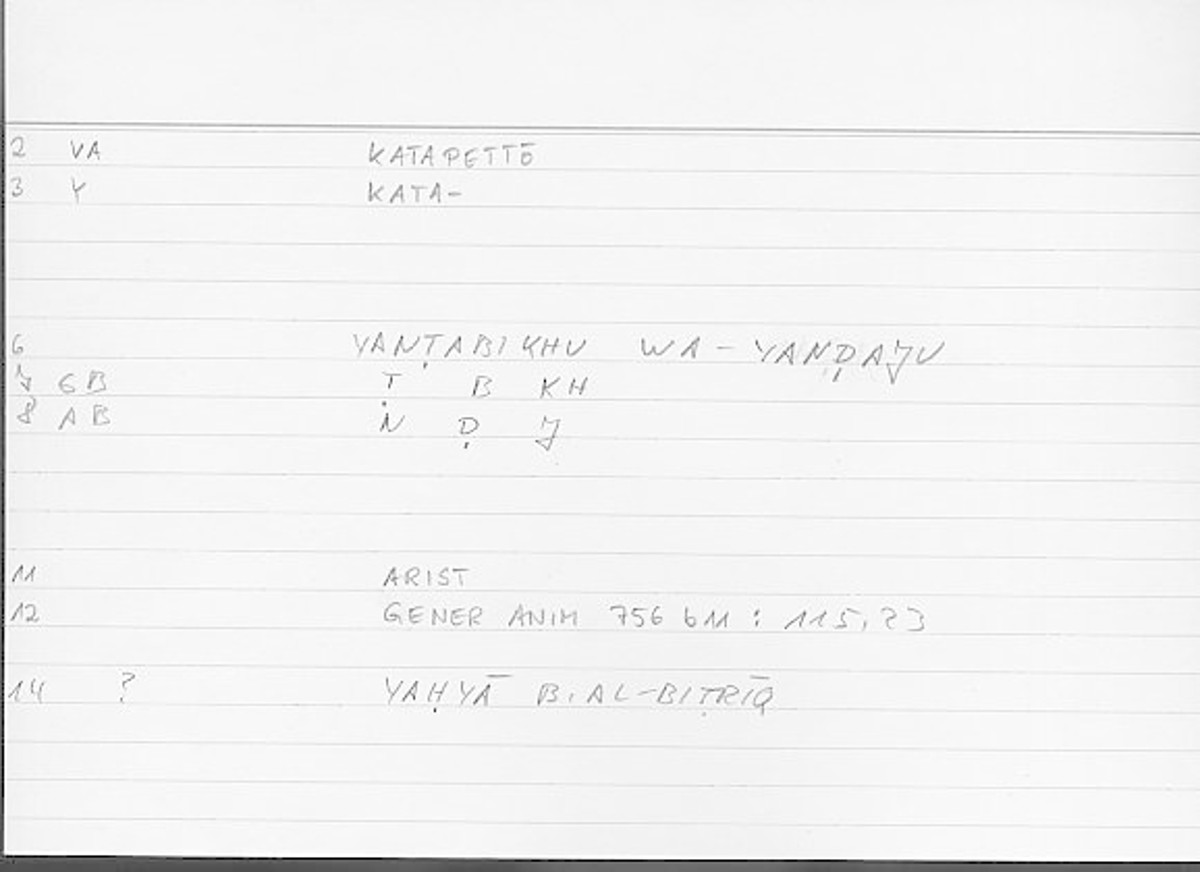 2 VA KATAPETTŌ
3 Y KATA-
6 YANṬABIKHU WA-YANḌAJU
7 GB Ṭ B KH
8 AB N Ḍ J
11 ARIST
12 GENER ANIM 756 b11 : 115,23
14 ? YAḤYĀ B. AL-BIṬRĪQ